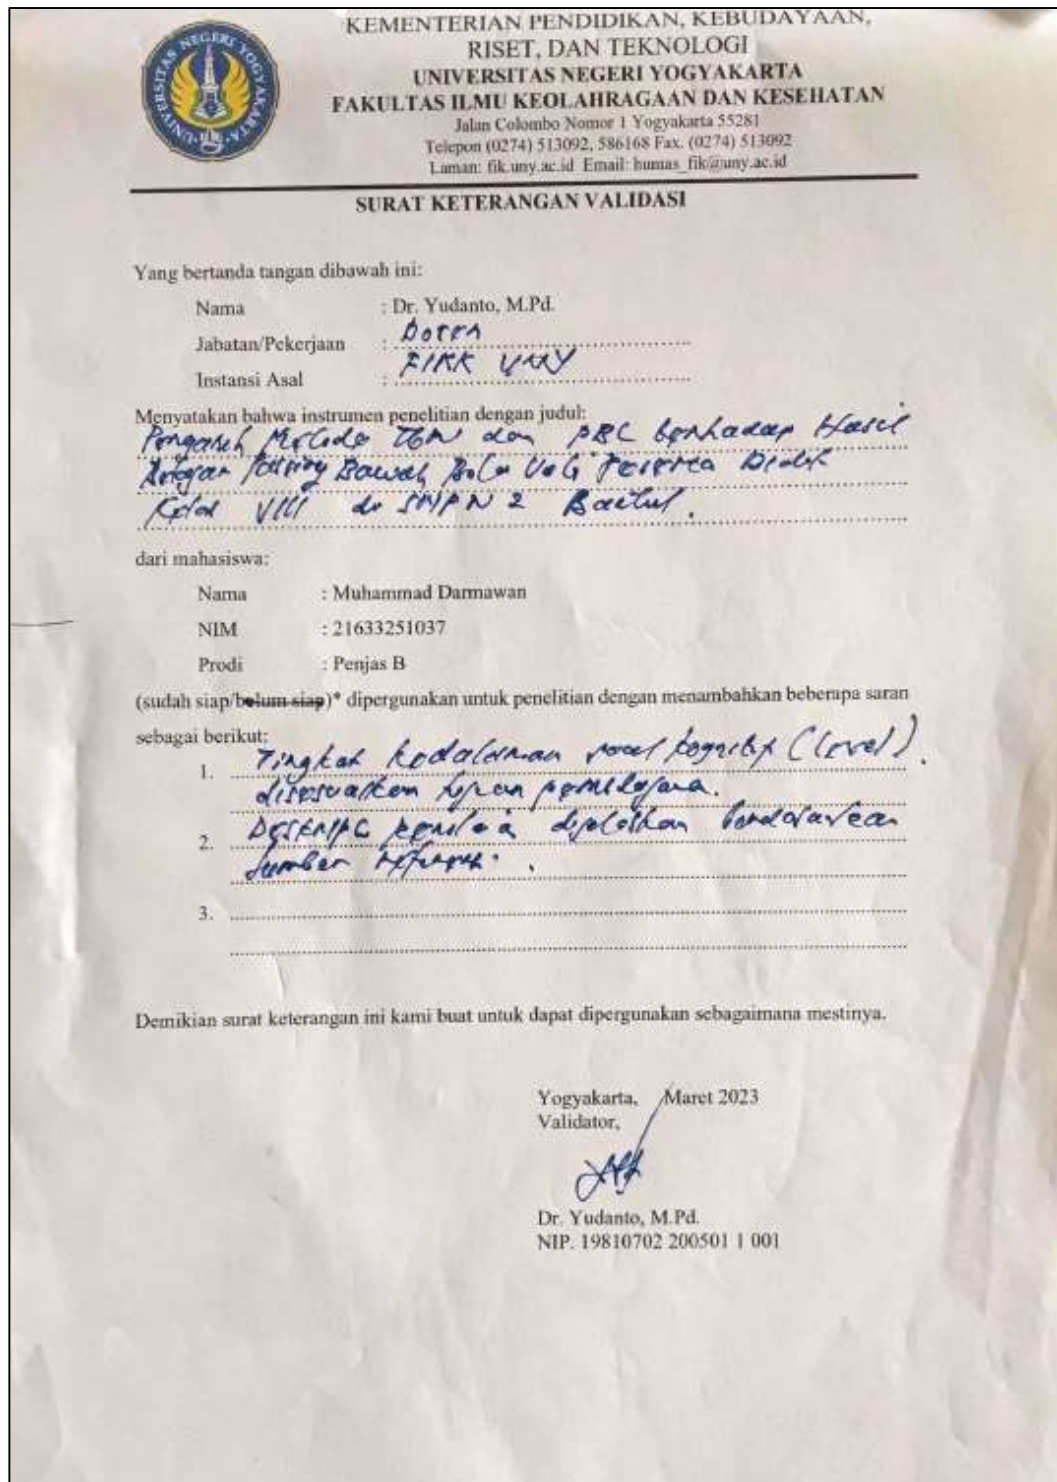 KEMENTERIAN PENDIDIKAN, KEBUDAYAAN,
RISET, DAN TEKNOLOGI
UNIVERSITAS NEGERI YOGYAKARTA
FAKULTAS ILMU KEOLAHRAGAAN DAN KESEHATAN
Jalan Colombo Nomor 1 Yogyakarta 55281
Telepon (0274) 513092, 586168 Fax. (0274) 513092
Laman: fik.uny.ac.id Email: humas_fik@uny.ac.id
UNIVERSITAS NEGERI YOGYAKARTA
SURAT KETERANGAN VALIDASI
Yang bertanda tangan dibawah ini:
Nama : Dr. Yudanto, M.Pd.
Jabatan/Pekerjaan : Dosen
Instansi Asal : FIKK UNY
Menyatakan bahwa instrumen penelitian dengan judul:
Pengaruh Metode dan PBL terhadap Hasil
Passing Bawah Bola Voli Peserta Didik
Kelas VIII di SMPN 2 Bantul.
dari mahasiswa:
Nama : Muhammad Darmawan
NIM : 21633251037
Prodi : Penjas B
(sudah siap/belum siap)* dipergunakan untuk penelitian dengan menambahkan beberapa saran
sebagai berikut:
1. Tingkat kedalaman soal kognitif (level).
disesuaikan
2. berdasarkan
sumber
3.
Demikian surat keterangan ini kami buat untuk dapat dipergunakan sebagaimana mestinya.
Yogyakarta, Maret 2023
Validator,
Dr. Yudanto, M.Pd.
NIP. 19810702 200501 1 001